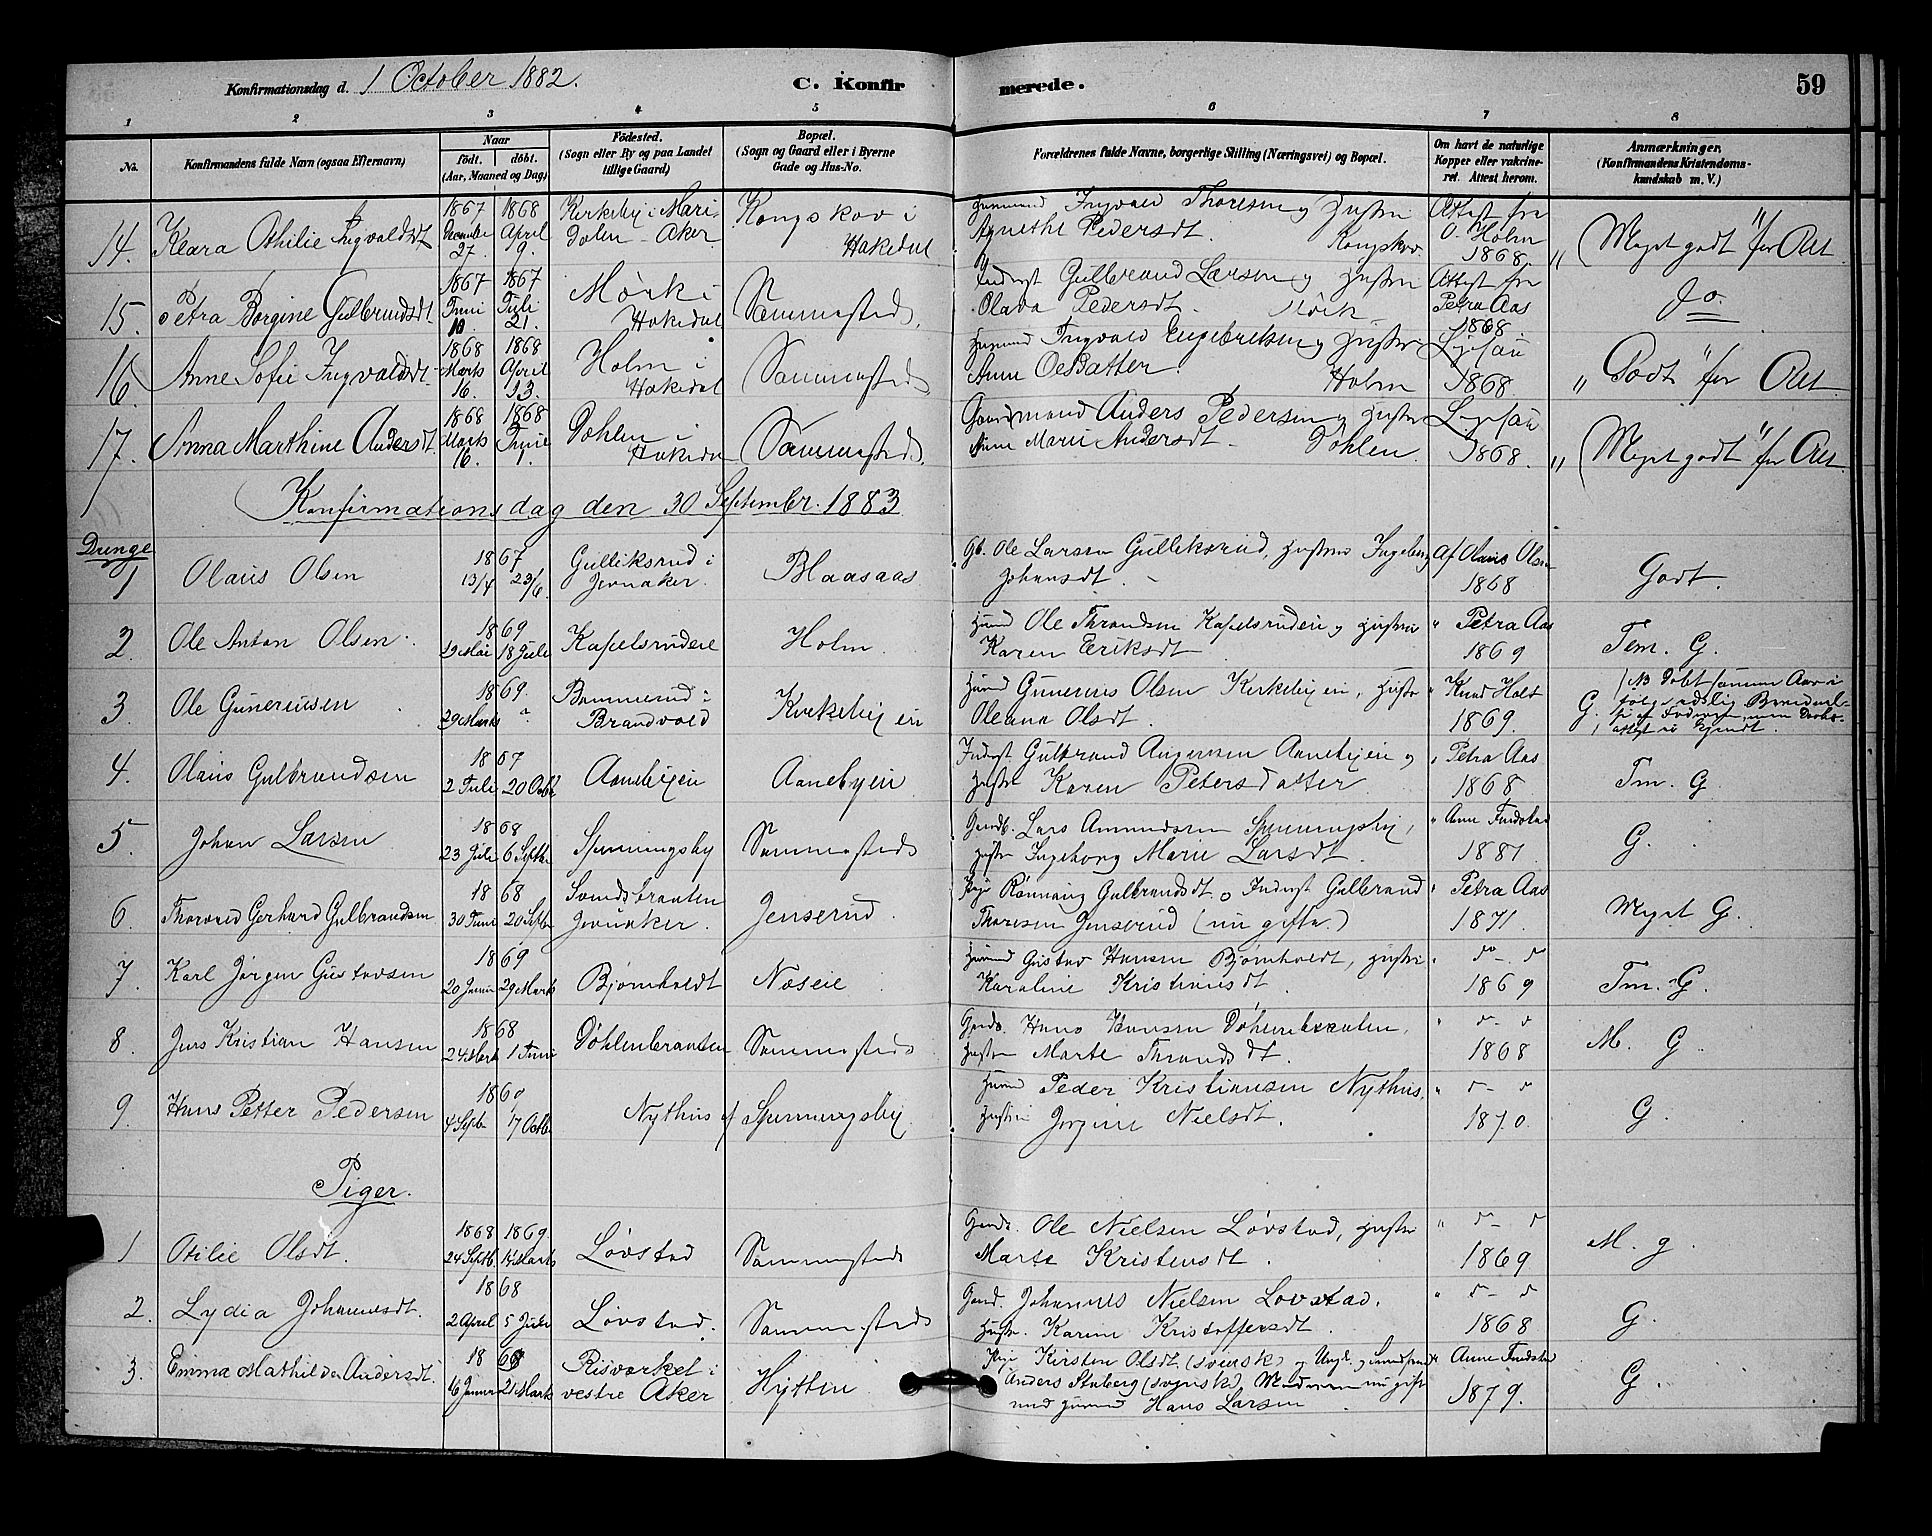 Konfirmationsdag d. 1 October 1882. C. Konfirmerede. 59
1 2 3 4 5 6 7 8
No. Konfirmandens fulde Navn (ogsaa Efternavn) Naar født. døbt. (Aar, Maaned og Dag) Födested. (Sogn eller By og paa Landet tillige Gaard) Bopæl. (Sogn og Gaard eller i Byerne Gade og Hus-No. Forældrenes fulde Navne, borgerlige Stilling (Næringsvei) og Bopæl. Om havt de naturlige Kopper eller vakcineret. Attest herom. Anmærkninger. (Konfirmandens Kristendomskundskab m. V.)
14. Klara Othilie Ingvaldsdt 1867 27. 1868 April 9. Kirkeby i Maridalen - Aker Kongskov i Hakedal Ingvald Thoresen og Hustru Agnethe Pedersdt. Kongskov Attest fra O. Holm 1868. „ Meget godt " for Alt
15. Petra Borgine Gulbrandsdt 1867 Juni 10. 1867 Juli 21. Mørk i Hakedal Sammesteds. Inderst Gulbrand Larsen og Hustru Olava Pedersdt. Mörk Attest fra Petra Aas 1868 Do
16. Anne Sofie Ingvaldsdt 1868 Marts 16. 1868 April 13. Holm i Hakedal Sammesteds Husmand Ingvald Engebretsen og Hustru Anne Holm Ligesaa 1868. „ Godt " for Alt
17. Anna Marthine Andersdt 1868 Marts 16. 1868 Juni 1. Døhlen i Hakedal Sammesteds. Gaardmand Anders Pedersen og Hustru Anne Marie Andersdt - Døhlen. Ligesaa 1868. „ Meget godt " for Alt
Konfirmationsdag den 30 September 1883
Drenge
1 Olaus Olsen 1867 13/4 23/6 Gulliksrud i Jevnaker. Blaasaas Gb. Ole Larsen Gulliksrud, Hustru Ingeborg Johansdt. Af Olaus Olsen 1868 Godt.
2. Ole Anton Olsen. 1869 19 Mai 18 Juli Kapelsrudeie Holm. Husmd Ole Thrandsen Kapelsrudeie og Hustru Karen Eriksdt " Petra Aas 1869 Tem. G.
3. Ole Gunerius​en 1869. 29 Marts ? i Brandvold Kirkebyein Husmd Gunerius Olsen Kirkebyein, Hustru Oleana Olsdt. " Knud Holt 1869. G. NB Døbt samme Aar i
4. Olaus Gulbrandsen 1867 2 Juli 20 Octb Aanebyein Aanebyein. Inderst Gulbrand Aanebyein og Hustru Karen Petersdatter. " Petra Aas 1868 Tm. G
5. Johan Larsen 1868 23 Juli 6 Septbr Spenningsby Sammesteds Gaardb. Lars Amundsen Spenningsby, Hustru Ingeborg Marie Larsdt. " Anne Furdstad 1881. G.
6 Thorvald Gerhard Gulbrandsen 1868 30 Juni 20 Septbr Jevnaker. Jenserud. Pige Rønnaug Gulbrandsdt. o Inderst Gulbrand Thoresen Jenserud (nu gifte.) " Petra Aas 1871. Meget G.
7. Karl Jörgen Gustavsen 1869 20 Januar 29 Marts Bjørnholdt Næseie Husmd Gustav Hansen Bjørnholdt, Hustru Karoline Kristiansdt. " do 1869 Tm. G.
8. Jens Kristian Hansen 1868 24 Marts 1 Juni Døhlenbraaten Sammesteds Gaardb. Hans Hansen Døhlenbraaten, Hustru Marte Thrandsdt. " do 1868 M. G.
9. Hans Petter Pedersen 4 Septbr 17 Octbr Nythus Spenningsby. Husmd Peder Kristiansen Nythus. Hustru Jørgine Nielsdt. " do 1870. G.
Piger.
1 Otilie Olsdt. 1868 24 Septb. 1869. 14 Marts Løvstad Sammesteds Gaardb. Ole Nielsen Løvstad, Hustru Marte Kristensdt. " do 1869 M. g.
2. Lydia Johannesdt. 1868 2 April 5 Juli Løvstad. Sammesteds Gaardb. Johannes Nielsen Lovstad. Hustru Karine Kristoffersdt. " do 1868 G.
3. Emma Mathilde Andersdt 1868 16 Januar 21 Marts Risværket i vestre Aker Hytten. Pige Kirsten Olsdt (svensk) og Ungk. Anders Stuberg (svensk) Moderen nu gift med Husmd Hans Larsen " Anne Furdstad 1879. G.